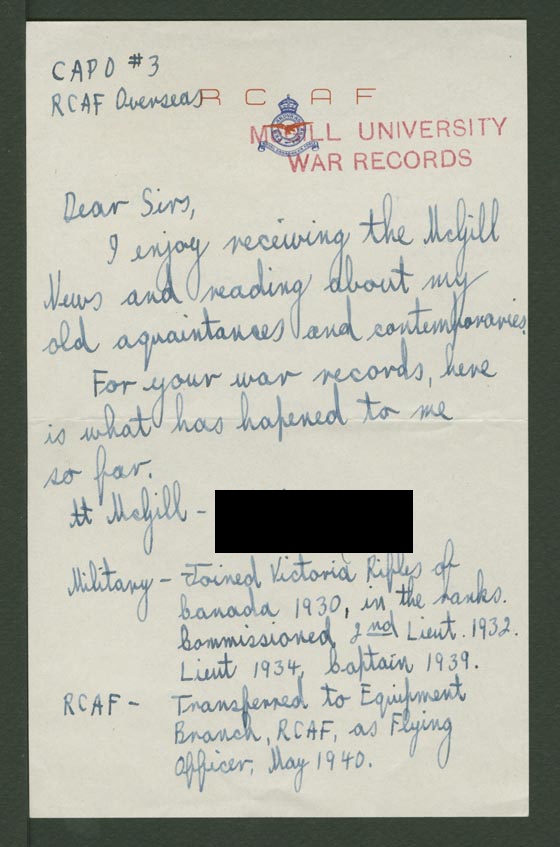 CAPO #3
RCAF Overseas
R C A F
McGILL UNIVERSITY
WAR RECORDS
Dear Sirs,
I enjoy receiving the McGill
News and reading about my
old aquaintances and contemporaries.
For your war records, here
is what has hapened to me
so far.
At McGill -
Military - Joined Victoria Rifles of
Canada 1930, in the ranks.
Commissioned 2nd Lieut. 1932.
Lieut 1934, Captain 1939.
RCAF - Transferred to Equipment
Branch, RCAF, as Flying
Officer, May 1940.